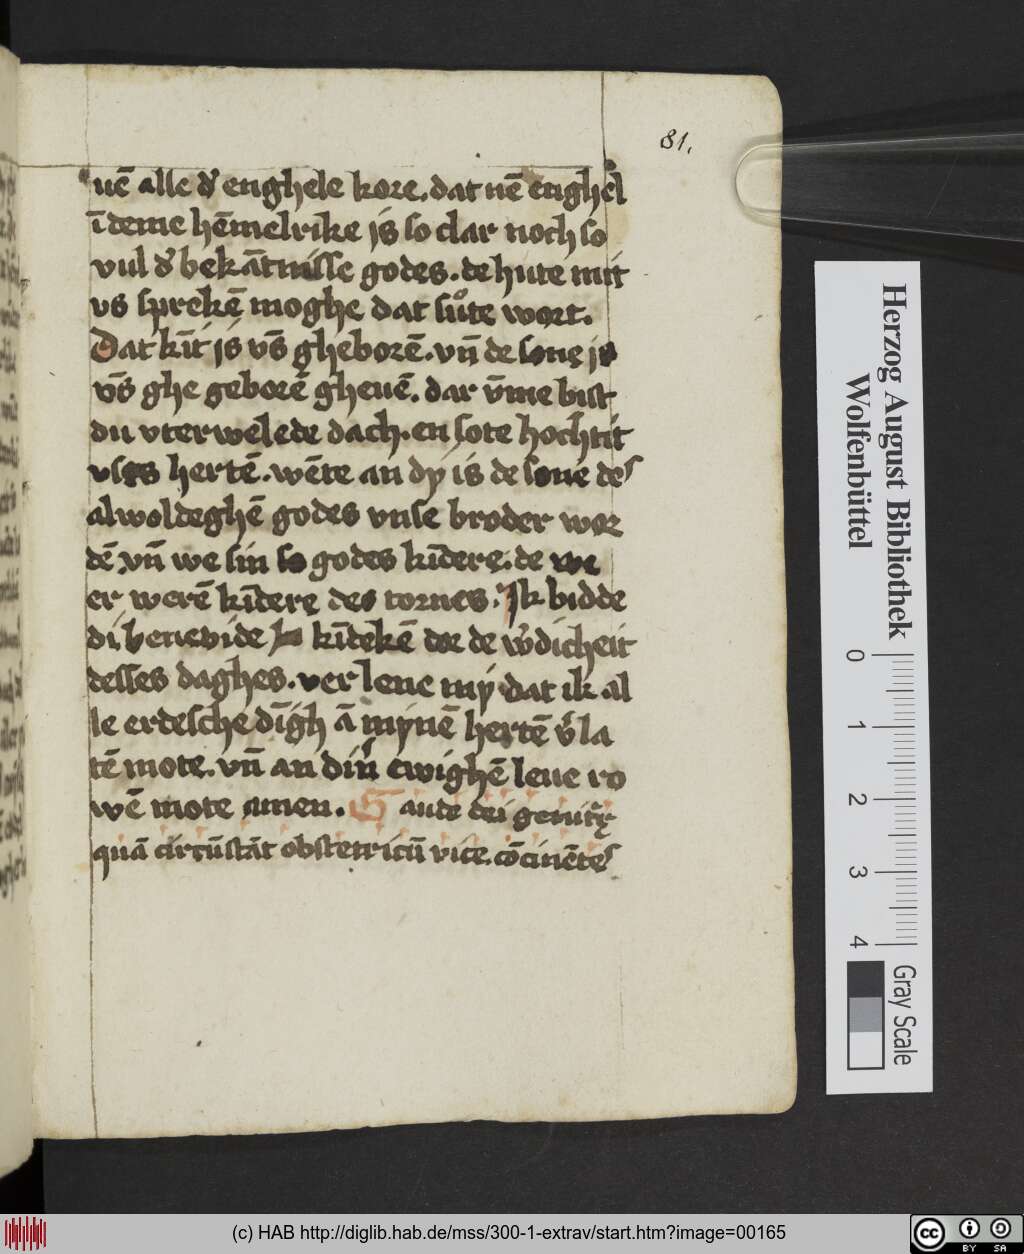 81.
uē alle dʼ enghele kore. dat nē enghel
ī deme hēmelrike js so clar noch so
vul dʼ bekātnisse godes. de hute mit
vs sprekē moghe dat sůte wort.
Dat kīt js vs̄ gheborē. vn̄ de sone js
vs̄ ghe geborē gheuē. dar v̄me bist
du vterwelede dach. en sote hochtit
vses hertē. wēte an dy is de sone des
alwoldeghē godes vnse broder wor
dē vn̄ we sin so godes kīdere. de we
er werē kīdere des tornes. Jk bidde
di benevide kīdekē doe de wʼdicheit
desses daghes. verlene my dat ik al
le erdesche dīgh ā mynē hertē vʼla
tē mote. vn̄ an dinʼ ewighē leue ro
wē mote amen. Gaude dei genitͥx
quā circūstāt obstetricū vice. cōcinētes
Herzog August Bibliothek
Wolfenbüttel
0 1 2 3 4
Gray Scale
(c) HAB http://diglib.hab.de/mss/300-1-extrav/start.htm?image=00165
cc BY SA